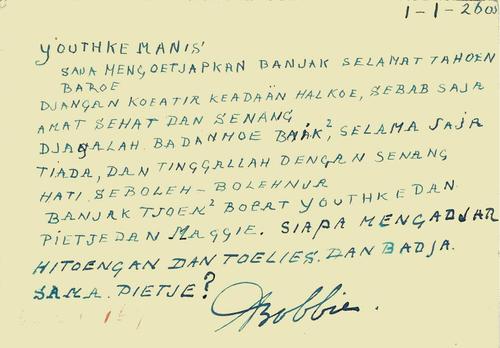 1-1-2603
YOUTHKE MANIS'
SAJA MENGOETJAPKAN BANJAK SELAMAT TAHOEN
BAROE
DJANGAN KOEATIR KEADAÄN HALKOE, SEBAB SAJA
AMAT SEHAT DAN SENANG
DJAGALAH BADANMOE BAIK², SELAMA SAJA
TIADA, DAN TINGGALLAH DENGAN SENANG
HATI SEBOLEH-BOLEHNJA
BANJAK TJOEM² BOEAT YOUTHKE DAN
PIETJE DAN MAGGIE. SIAPA MENGADJAR
HITOENGAN DAN TOELIES. DAN BADJA.
SAMA. PIETJE?
Bobbie.